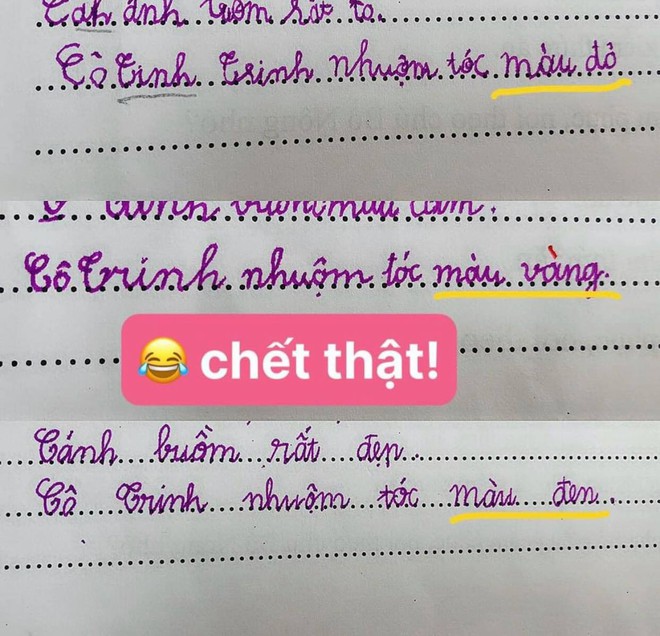 rất to.
Cô Tinh Trinh nhuậm tóc màu đỏ
màu cam.
Cô Trinh nhuộm tóc màu vàng.
😂 chết thật!
Cánh buồm rất đẹp.
Cô Trinh nhuộm tóc màu đen.